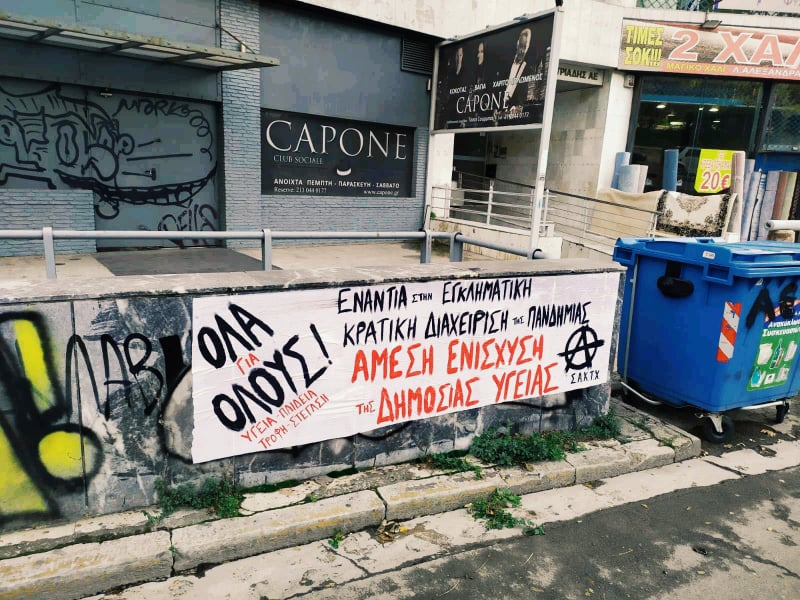 CAPONE
CLUB SOCIALE
ΑΝΟΙΧΤΑ ΠΕΜΠΤΗ - ΠΑΡΑΣΚΕΥΗ - ΣΑΒΒΑΤΟ
Reserve: 213 044 0177
www.capone.gr
ΚΟΚΟΤΑΣ
ΒΑΓΙΑ
CAPONE
ΡΙΑΔΗΣ ΑΕ
ΤΙΜΕΣ
ΣΟΚ!!!
2 ΧΑΛ
ΜΑΓΙΚΟ ΧΑΛΙ
Λ.ΑΛΕΞΑΝΔΡΑ
20€
ΟΛΑ
ΓΙΑ
ΟΛΟΥΣ!
ΥΓΕΙΑ-ΠΑΙΔΕΙΑ
ΤΡΟΦΗ-ΣΤΕΓΑΣΗ
ΕΝΑΝΤΙΑ ΣΤΗΝ ΕΓΚΛΗΜΑΤΙΚΗ
ΚΡΑΤΙΚΗ ΔΙΑΧΕΙΡΙΣΗ ΤΗΣ ΠΑΝΔΗΜΙΑΣ
ΑΜΕΣΗ ΕΝΙΣΧΥΣΗ
ΤΗΣ ΔΗΜΟΣΙΑΣ ΥΓΕΙΑΣ
ΣΑΧΤΧ